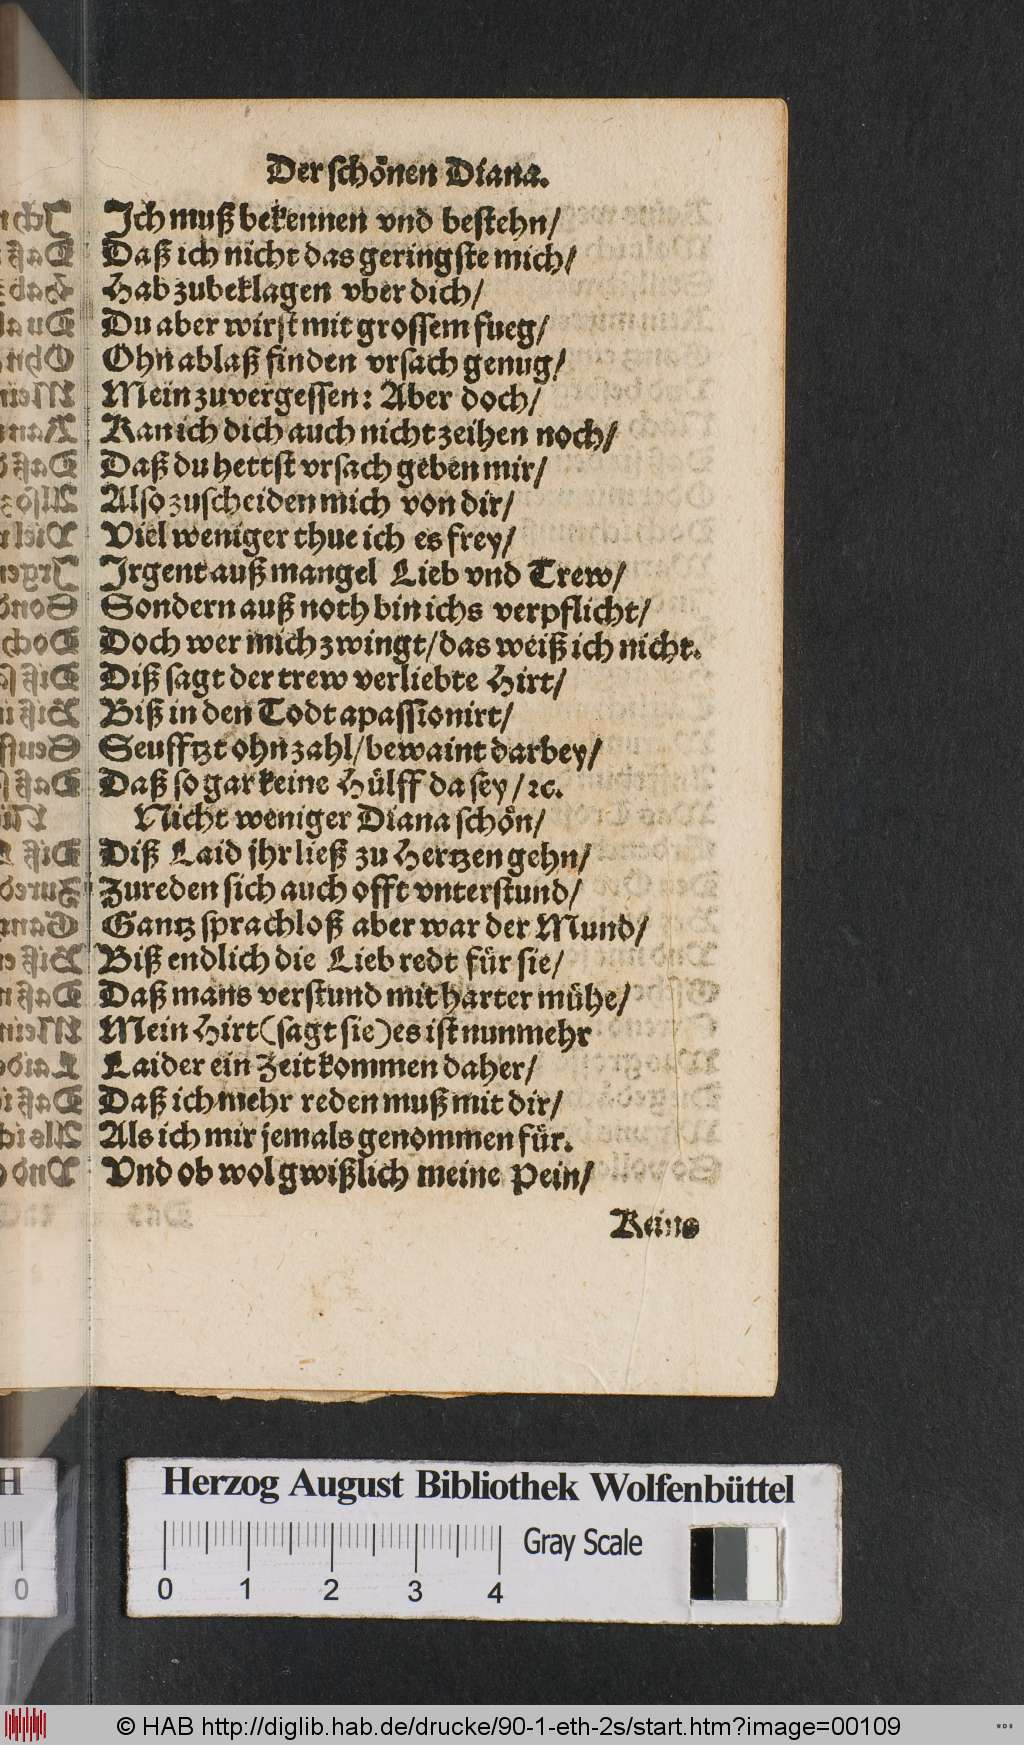 Der schönen Diana.
Ich muß bekennen vnd bestehn/
Daß ich nicht das geringste mich/
Hab zubeklagen vber dich/
Du aber wirst mit grossem fueg/
Ohn ablaß finden vrsach genug/
Mein zuvergessen: Aber doch/
Kan ich dich auch nicht zeihen noch/
Daß du hettst vrsach geben mir/
Also zuscheiden mich von dir/
Viel weniger thue ich es frey/
Irgent auß mangel Lieb vnd Trew/
Sondern auß noth bin ichs verpflicht/
Doch wer mich zwingt/das weiß ich nicht.
Diß sagt der trew verliebte Hirt/
Biß in den Todt apassionirt/
Seufftzt ohn zahl/bewaint darbey/
Daß so gar keine Hülff da sey/ꝛc.
Nicht weniger Diana schön/
Diß Laid jhr ließ zu Hertzen gehn/
Zureden sich auch offt vnterstund/
Gantz sprachloß aber war der Mund/
Biß endlich die Lieb redt für sie/
Daß mans verstund mit harter mühe/
Mein Hirt (sagt sie) es ist nunmehr
Laider ein Zeit kommen daher/
Daß ich mehr reden muß mit dir/
Als ich mir jemals genommen für.
Vnd ob wol gwißlich meine Pein/
Herzog August Bibliothek Wolfenbüttel
Gray Scale
0 1 2 3 4
H
0
© HAB http://diglib.hab.de/drucke/90-1-eth-2s/start.htm?image=00109